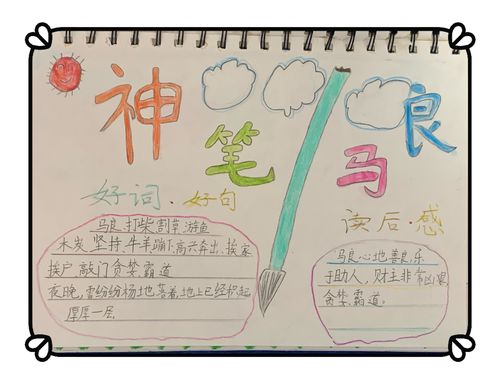 神笔马良
好词·好句
马良、打柴、割草、游鱼
木炭、坚持、牛羊、蹦下、高兴、奔出、挨家
挨户、敲门、贪婪、霸道
夜晚，雪纷纷杨杨地落着，地上已经积起
厚厚一层
读后·感
马良心地善良、乐
于助人，财主非常凶恶
贪婪、霸道。